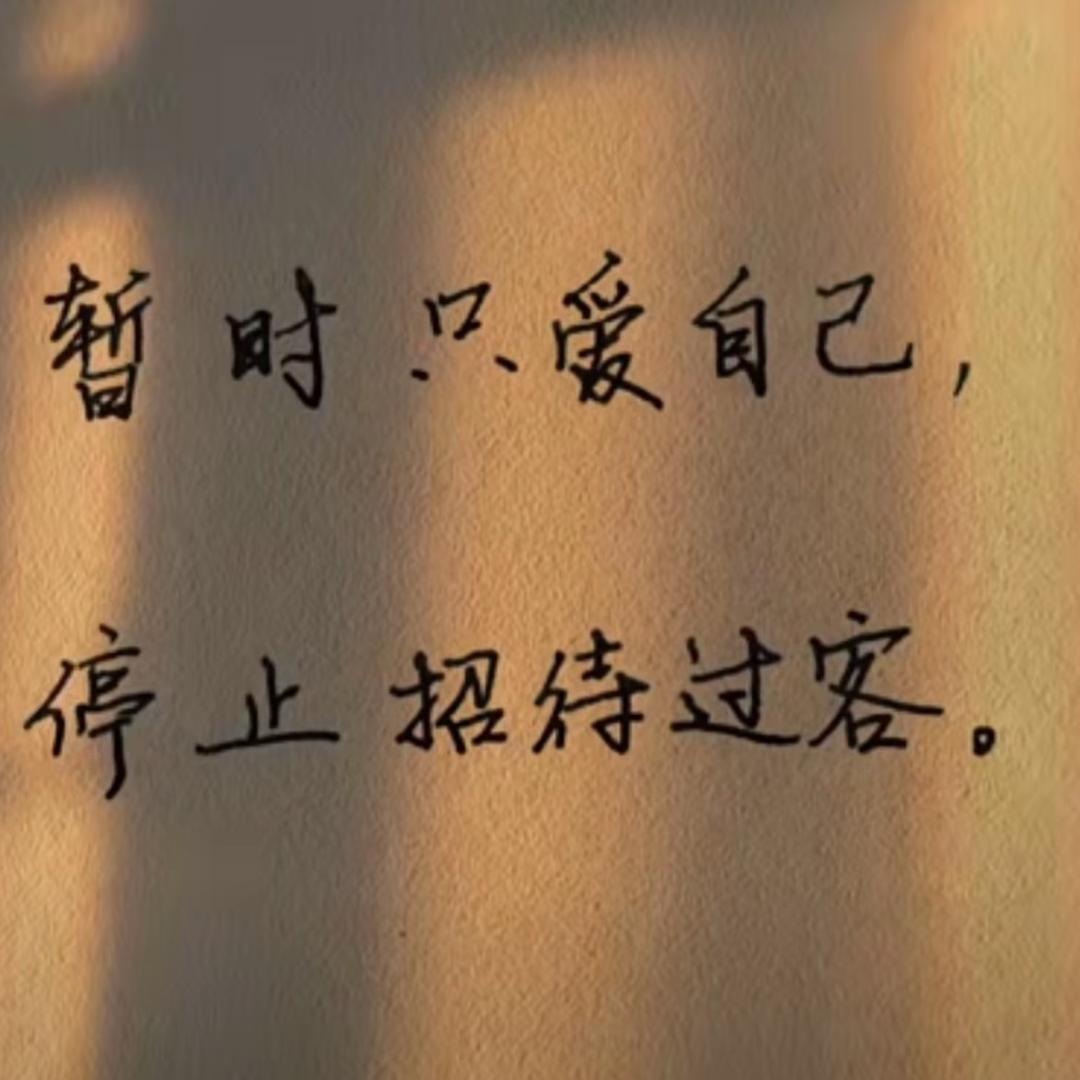 暂时只爱自己,
停止招待过客。